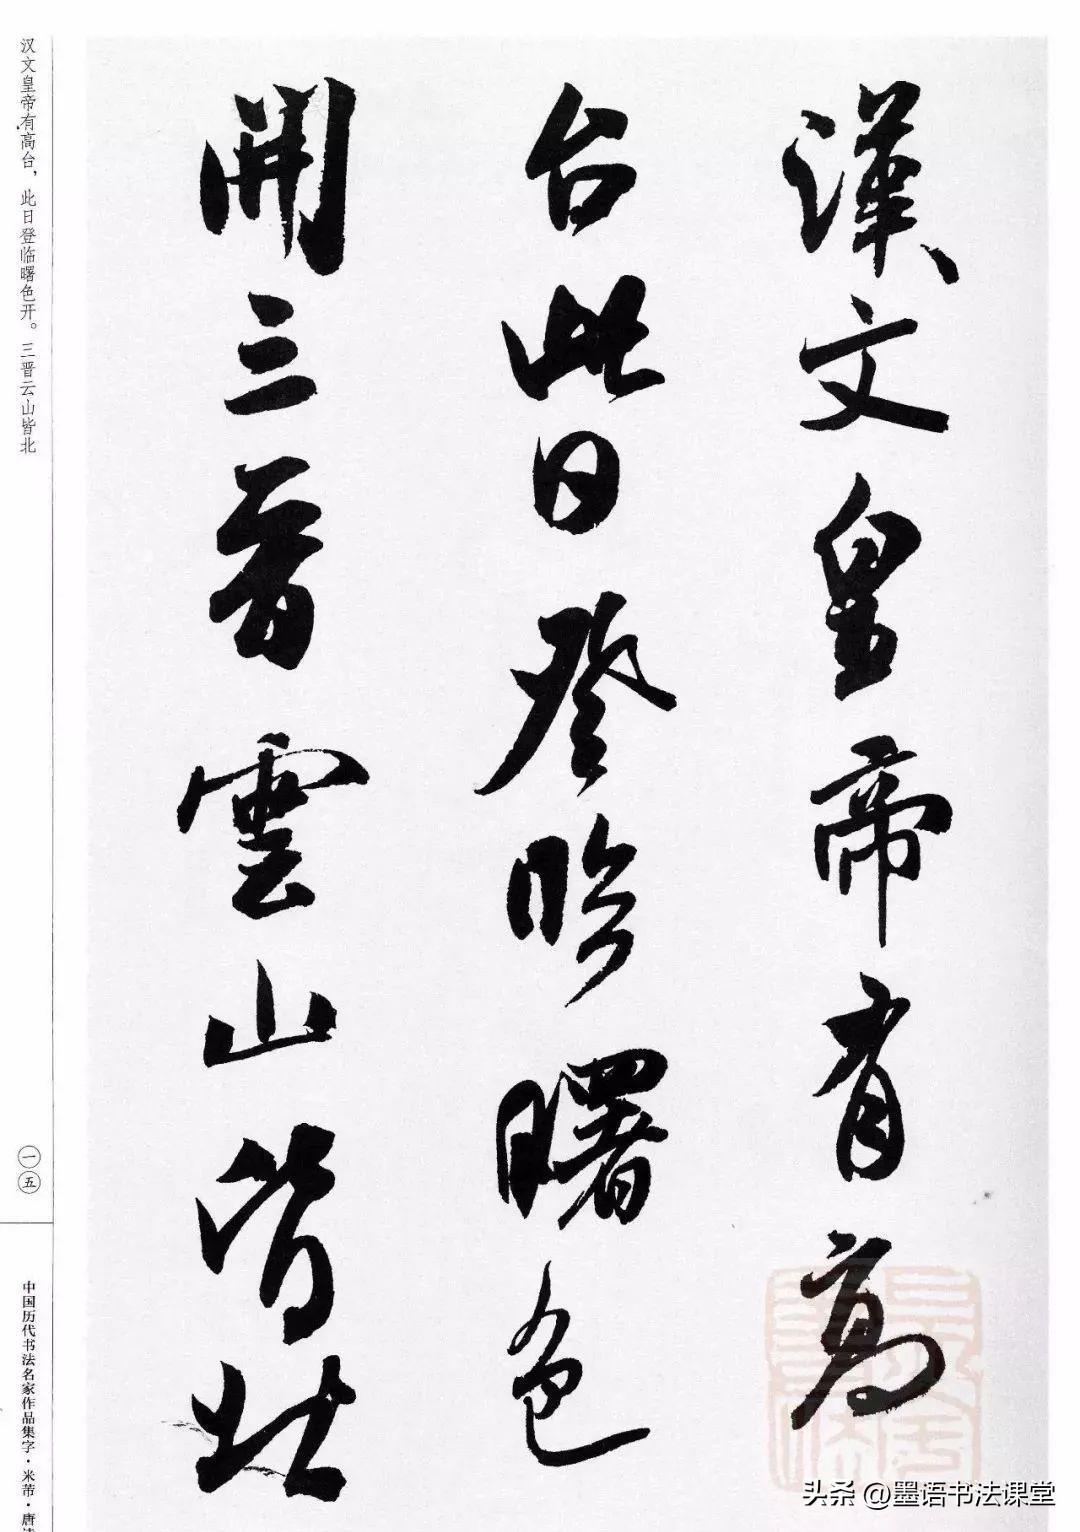 漢文皇帝有高
台此日登临曙色
開三晉雲山皆北
汉文皇帝有高台，此日登临曙色开。三晋云山皆北
一五
中国历代书法名家作品集字·米芾·唐
头条 @墨语书法课堂